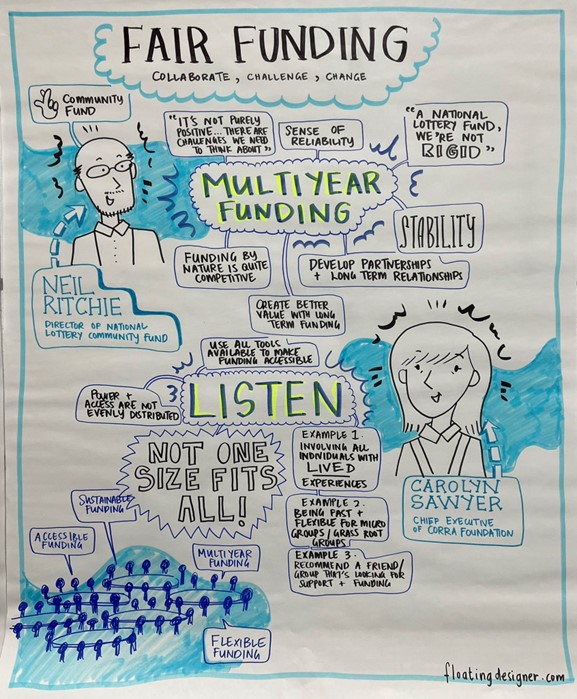 FAIR FUNDING
COLLABORATE, CHALLENGE, CHANGE
COMMUNITY
FUND
"IT'S NOT PURELY
POSITIVE... THERE ARE
CHALLENGES WE NEED
TO THINK ABOUT"
SENSE OF
RELIABILITY
"A NATIONAL
LOTTERY FUND,
WE'RE NOT
RIGID"
MULTIYEAR
FUNDING
STABILITY
FUNDING BY
NATURE IS QUITE
COMPETITIVE
DEVELOP PARTNERSHIPS
+ LONG TERM RELATIONSHIPS
CREATE BETTER
VALUE WITH LONG
TERM FUNDING
NEIL
RITCHIE
DIRECTOR OF NATIONAL
LOTTERY COMMUNITY FUND
USE ALL TOOLS
AVAILABLE TO MAKE
FUNDING ACCESSIBLE
POWER +
ACCESS ARE NOT
EVENLY DISTRIBUTED
LISTEN
NOT ONE
SIZE FITS
ALL!
EXAMPLE 1.
INVOLVING ALL
INDIVIDUALS WITH
LIVED
EXPERIENCES
EXAMPLE 2.
BEING FAST +
FLEXIBLE FOR MICRO
GROUPS/GRASS ROOT
GROUPS
EXAMPLE 3.
RECOMMEND A FRIEND/
GROUP THAT'S LOOKING FOR
SUPPORT + FUNDING
CAROLYN
SAWYER
CHIEF EXECUTIVE
OF CORRA FOUNDATION
SUSTAINABLE
FUNDING
ACCESSIBLE
FUNDING
MULTIYEAR
FUNDING
FLEXIBLE
FUNDING
floatingdesigner.com